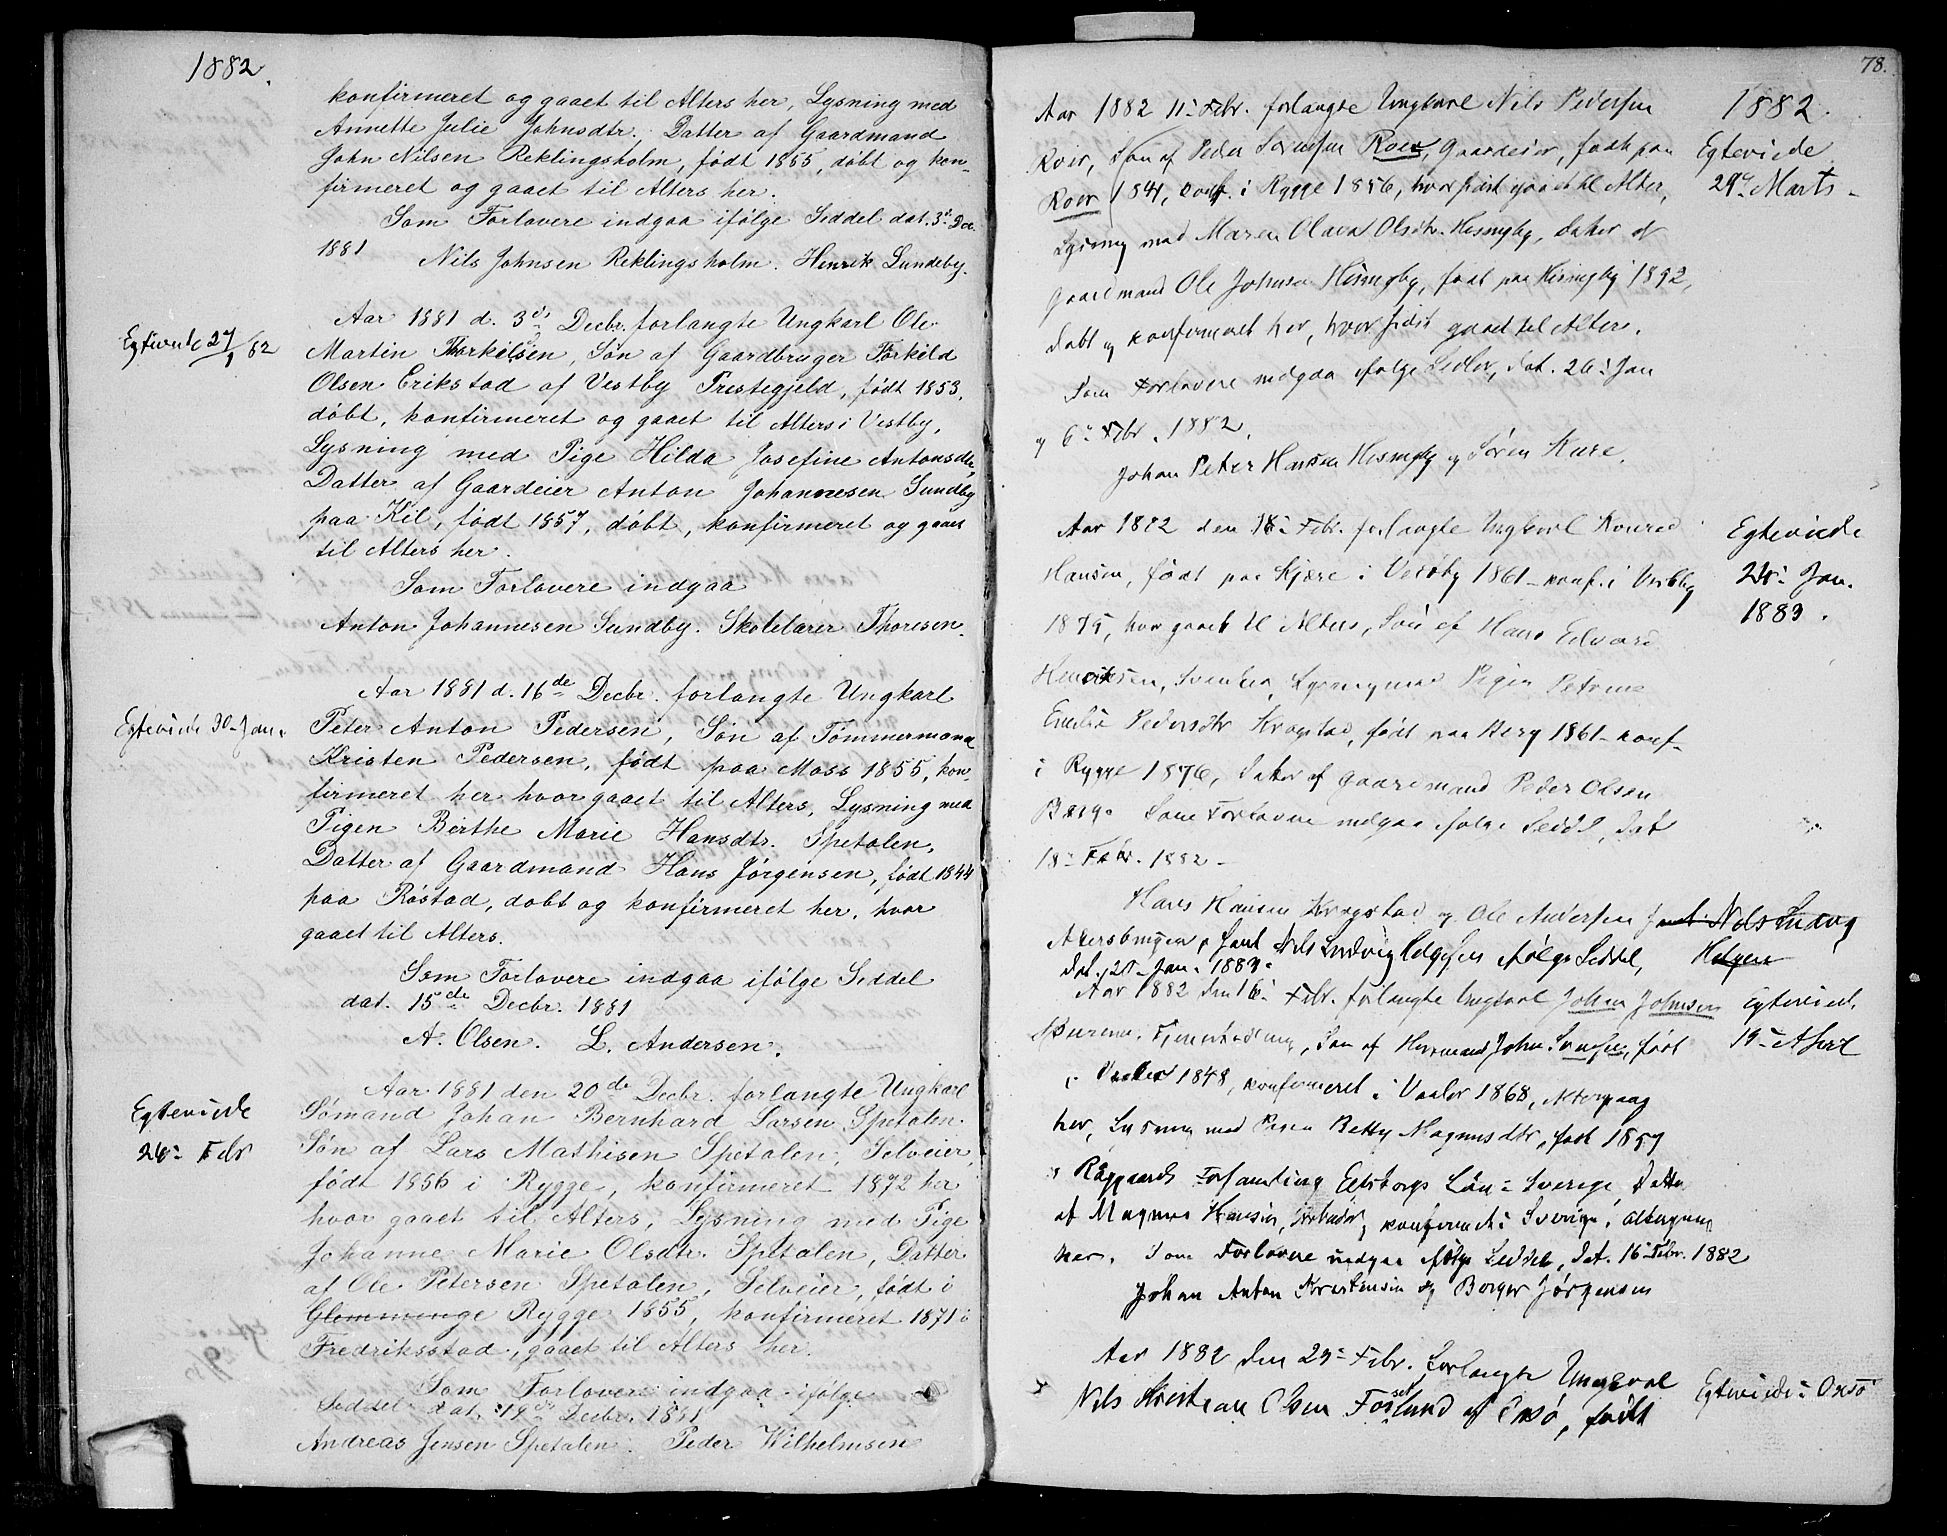 1882.
konfirmeret og gaaet til Alters her, Lysning med
Annette Julie Johnsdtr. Datter af Gaardmand
John Nilsen Reklingsholm, født 1855, døbt og kon-
firmeret og gaaet til Alters her.
Som Forlovere indgaa ifølge Seddel dat. 3d Dec.
1881 Nils Johnsen Reklingsholm. Henrik Lundeby.
Egteviede 27/1 82
Aar 1881 d. 3die Decbr. forlangte Ungkarl Ole
Martin Thorkilsen, Søn af Gaardbruger Torkild
Olsen Erikstad af Vestby Prestegjeld, født 1853,
døbt, konfirmeret og gaaet til Alters i Vestby,
Lysning med Pige Hilda Josefine Antonsdtr,
Datter af Gaardeier Anton Johannesen Sundby
paa Kil, født 1857, døbt, konfirmeret og gaaet
til Alters her.
Som Forlovere indgaa
Anton Johannesen Sundby. Skolelærer Thoresen.
Egteviede 30- Jan.
Aar 1881 d. 16de Decbr. forlangte Ungkarl
Peter Anton Pedersen, Søn af Tømmermand
Kristen Pedersen, født paa Moss 1855, kon-
firmeret her hvor gaaet til Alters, Lysning med
Pigen Birthe Marie Hansdtr. Spetalen,
Datter af Gaardmand Hans Jørgensen, født 1844
paa Røstad, døbt og konfirmeret her, hvor
gaaet til Alters.
Som Forlovere indgaa ifølge Seddel
dat. 15de Decbr. 1881
A. Olsen. L. Andersen.
Egteviede
26- Febr
Aar 1881 den 20de Decbr. forlangte Ungkarl
Sømand Johan Bernhard Larsen Spetalen
Søn af Lars Mathisen Spetalen, Selveier,
født 1856 i Rygge, konfirmeret 1872 her
hvor gaaet til Alters, Lysning med Pige
Johanne Marie Olsdtr. Spetalen, Datter
af Ole Petersen Spetalen, Selveier, født i
Glemminge Rygge 1855, konfirmeret 1871 i
Fredriksstad, gaaet til Alters her.
Som Forlovere indgaa ifølge
Seddel dat. 19de Decbr. 1881
Andreas Jensen Spetalen. Peder Wilhelmsen
78.
1882.
Egteviede
29- Marts -
Aar 1882 11- Febr. forlangte Ungkarl Nils Pedersen
Roer, Søn af Peder Sørensen Roer, Gaardeier, født paa
Roer 1841, konf. i Rygge 1856, hvor sidst gaaet til Alter,
Lysning med Maren Olava Olsdtr. Hesngby, datter af
Gaardmand Ole Johnsen Hesngby, født paa Hesngby
døbt og konfirmeret her, hvor sidst gaaet til Alters.
Som Forlovere indgaa ifølge Sedler, dat. 26- Jan
og 6- Febr. 1882.
Johan Peter Hansen Hesngby og Søren Kure.
Egteviede
Jan.
1883.
Aar 1882 den 18- Febr. forlangte Ungkarl Konrad
Hansen, født paa Kjære i Vestby 1861 - konf. i Vestby
1875, hvor gaaet til Alters, Søn af Hans Edvard
Henriksen, Lysning med Pigen Petrine
Emilie Pedersdtr Krogstad, født paa Berg 1861 - konf-
i Rygge 1876, datter af Gaardmand Peder Olsen
Berg. Som Forlovere indgaa ifølge Seddel, dat
18- Febr. 1882 -
Hans Hansen Krogstad og Ole Andersen samt Nils Ludvig
Akersbingen, samt Nils Ludvig Helgesen ifølge Seddel, Helgesen
dat. Jan. 1883.
Aar 1882 den 16- Febr. forlangte Ungkarl Johan Johnsen
Søn af Husmand John født
i Vaaler 1848, konfirmeret i Vaaler 1868, Altergang
her, Lysning med Pigen Betty Magnusdtr, født 1857
i Forsamling Elfsborgs Län i Sverige, Datter
af Magnus Hansen, Arbeider, konfirmeret i Sverige, altergang
her. Som Forlovere indgaa ifølge Seddel, dat. 16- Febr. 1882
Johan Anton Kristensen og Borger Jørgensen
Egteviede
19- April
Aar 1882 den 23- Febr. forlangte Ungkarl
Nils Kristian Olsen Fosslund af Onsø, født
Egteviede i Onsø